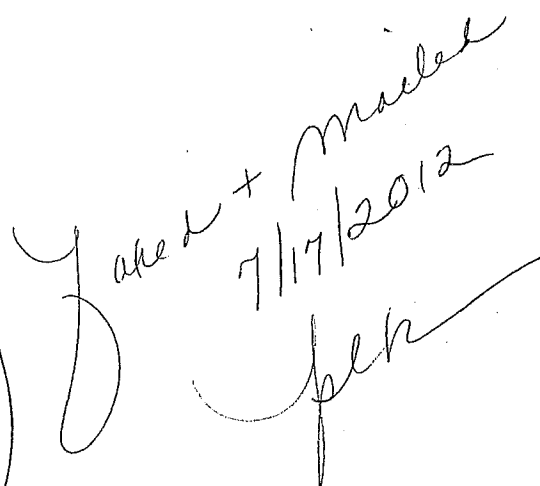 Faxed + Mailed
7/17/2012